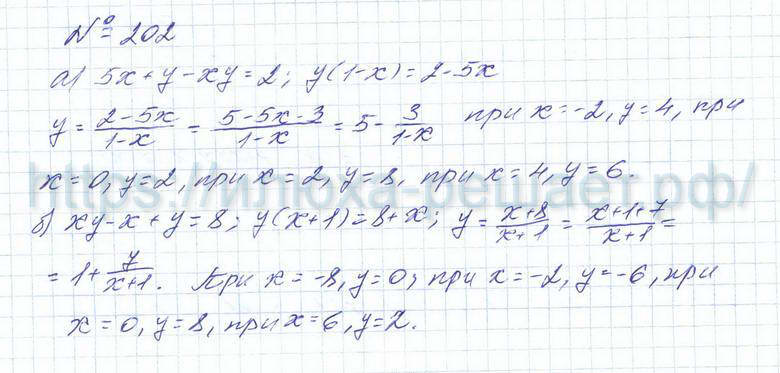 № 202
а) 5x + y - xy = 2; y(1-x) = 2-5x
y = (2-5x)/(1-x) = (5-5x-3)/(1-x) = 5 - 3/(1-x) при x = -2, y = 4, при
x = 0, y = 2, при x = 2, y = 8, при x = 4, y = 6.
https://илюха-решает.рф/
б) xy - x + y = 8; y(x+1) = 8+x; y = (x+8)/(x+1) = (x+1+7)/(x+1) =
= 1 + 7/(x+1). При x = -8, y = 0, при x = -2, y = -6, при
x = 0, y = 8, при x = 6, y = 2.